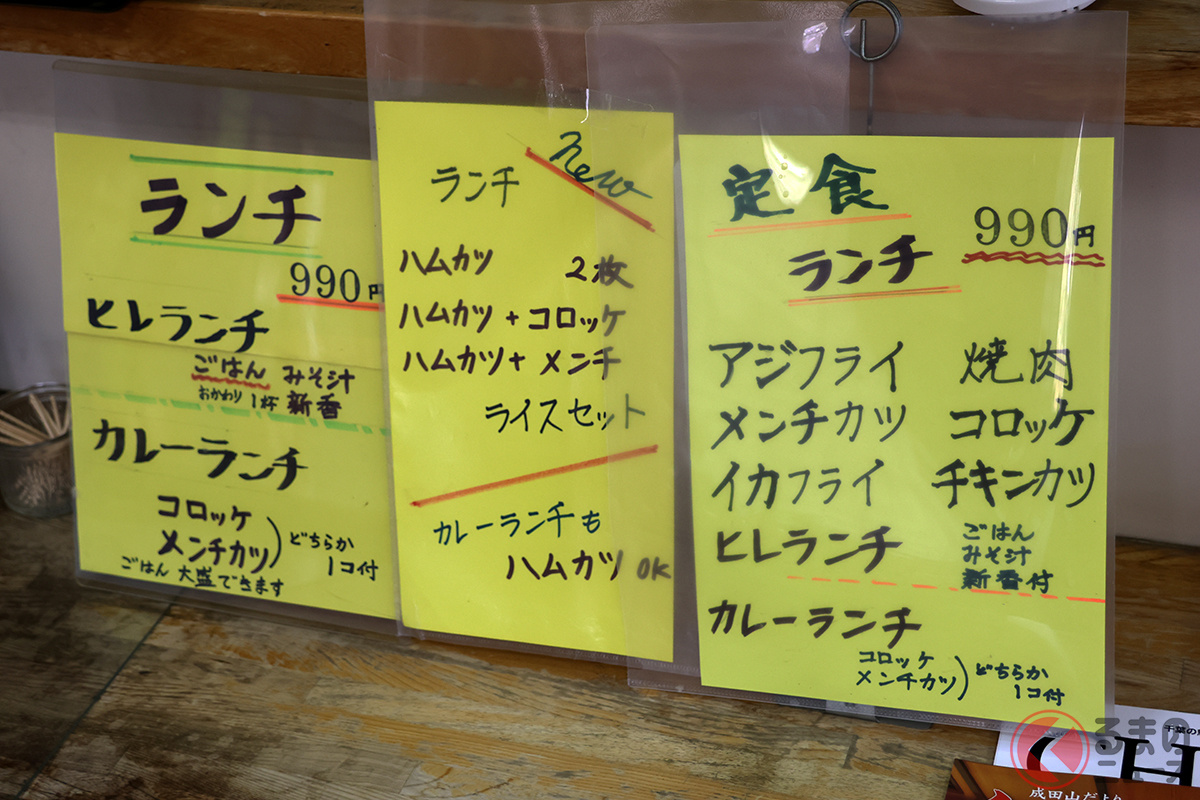 ランチ
990円
ヒレランチ
ごはん みそ汁
おかわり1杯 新香
カレーランチ
コロッケ
メンチカツ) どちらか
1コ付
ごはん 大盛できます
ランチ New
ハムカツ 2枚
ハムカツ + コロッケ
ハムカツ + メンチ
ライスセット
カレーランチも
ハムカツ OK
定食
ランチ 990円
アジフライ 焼肉
メンチカツ コロッケ
イカフライ チキンカツ
ヒレランチ ごはん
みそ汁
新香付
カレーランチ
コロッケ
メンチカツ) どちらか
1コ付
千葉の
CH
成田山だより
くるまの
ニュース